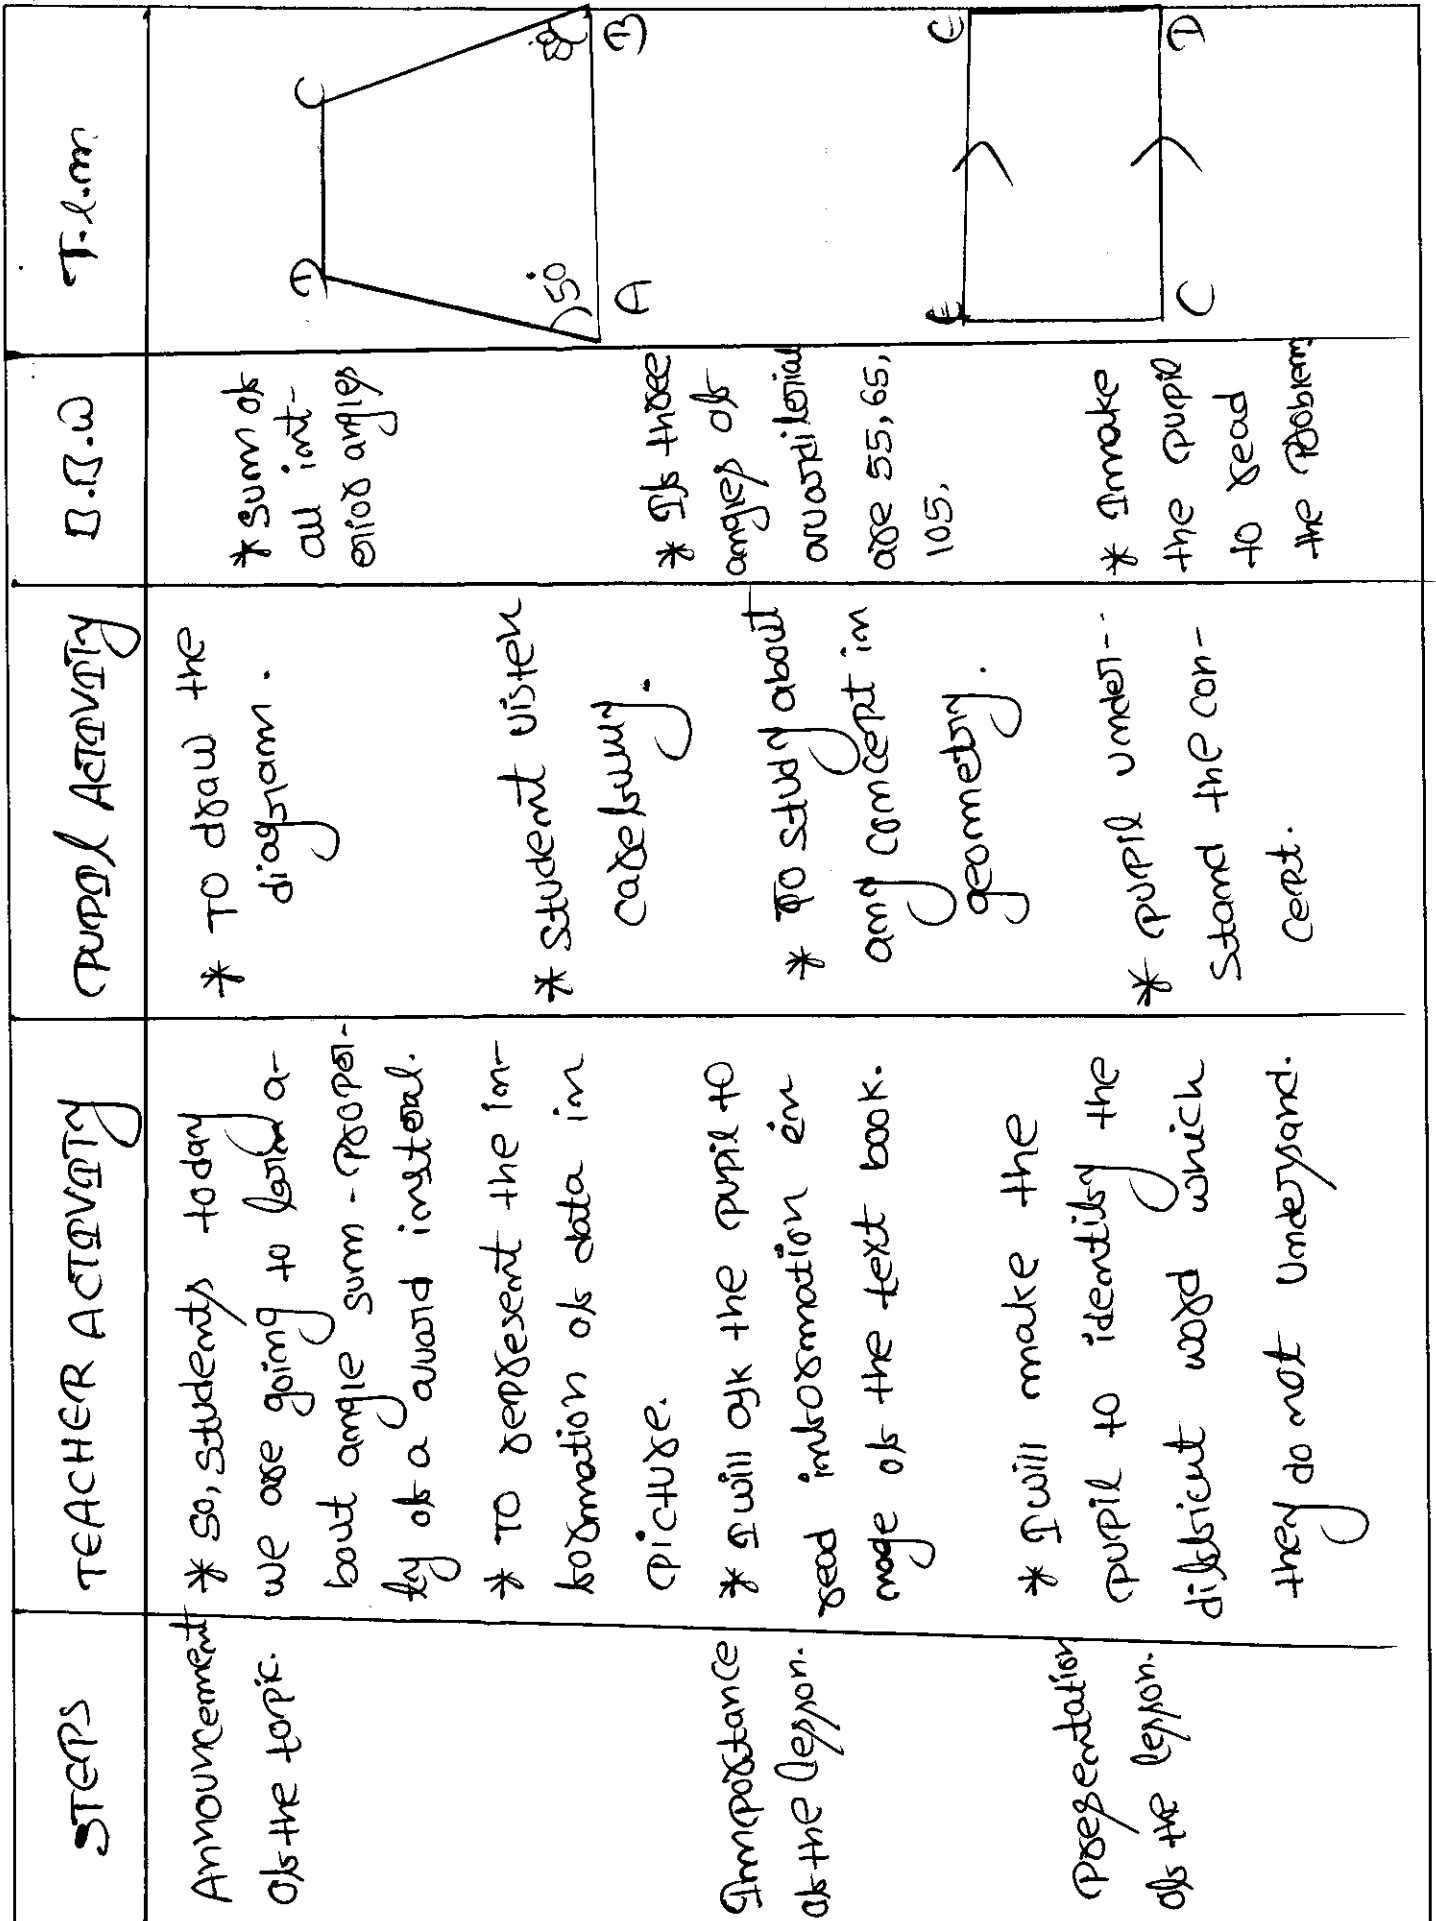 STEPS
TEACHER ACTIVITY
PUPIL ACTIVITY
B.B.W
T.l.m
Announcement
of the topic.
* So, students today
we are going to learn a-
bout angle sum - proper-
ty of a
* To represent the in-
formation of data in
picture.
* To draw the
diagram.
* student listen
carefully.
* sum of
all int-
erior angles
D C
50°
80
A B
Importance
of the lesson.
* I will ask the pupil to
read information in
of the text book.
* To study about
any concept in
geometry.
* If three
angles of
are 55, 65,
105,
Presentation
of the lesson.
* I will make the
pupil to identify the
difficult word which
they do not Undersand.
* pupil under-
stand the con-
cept.
* I make
the pupil
to read
the problem
C D